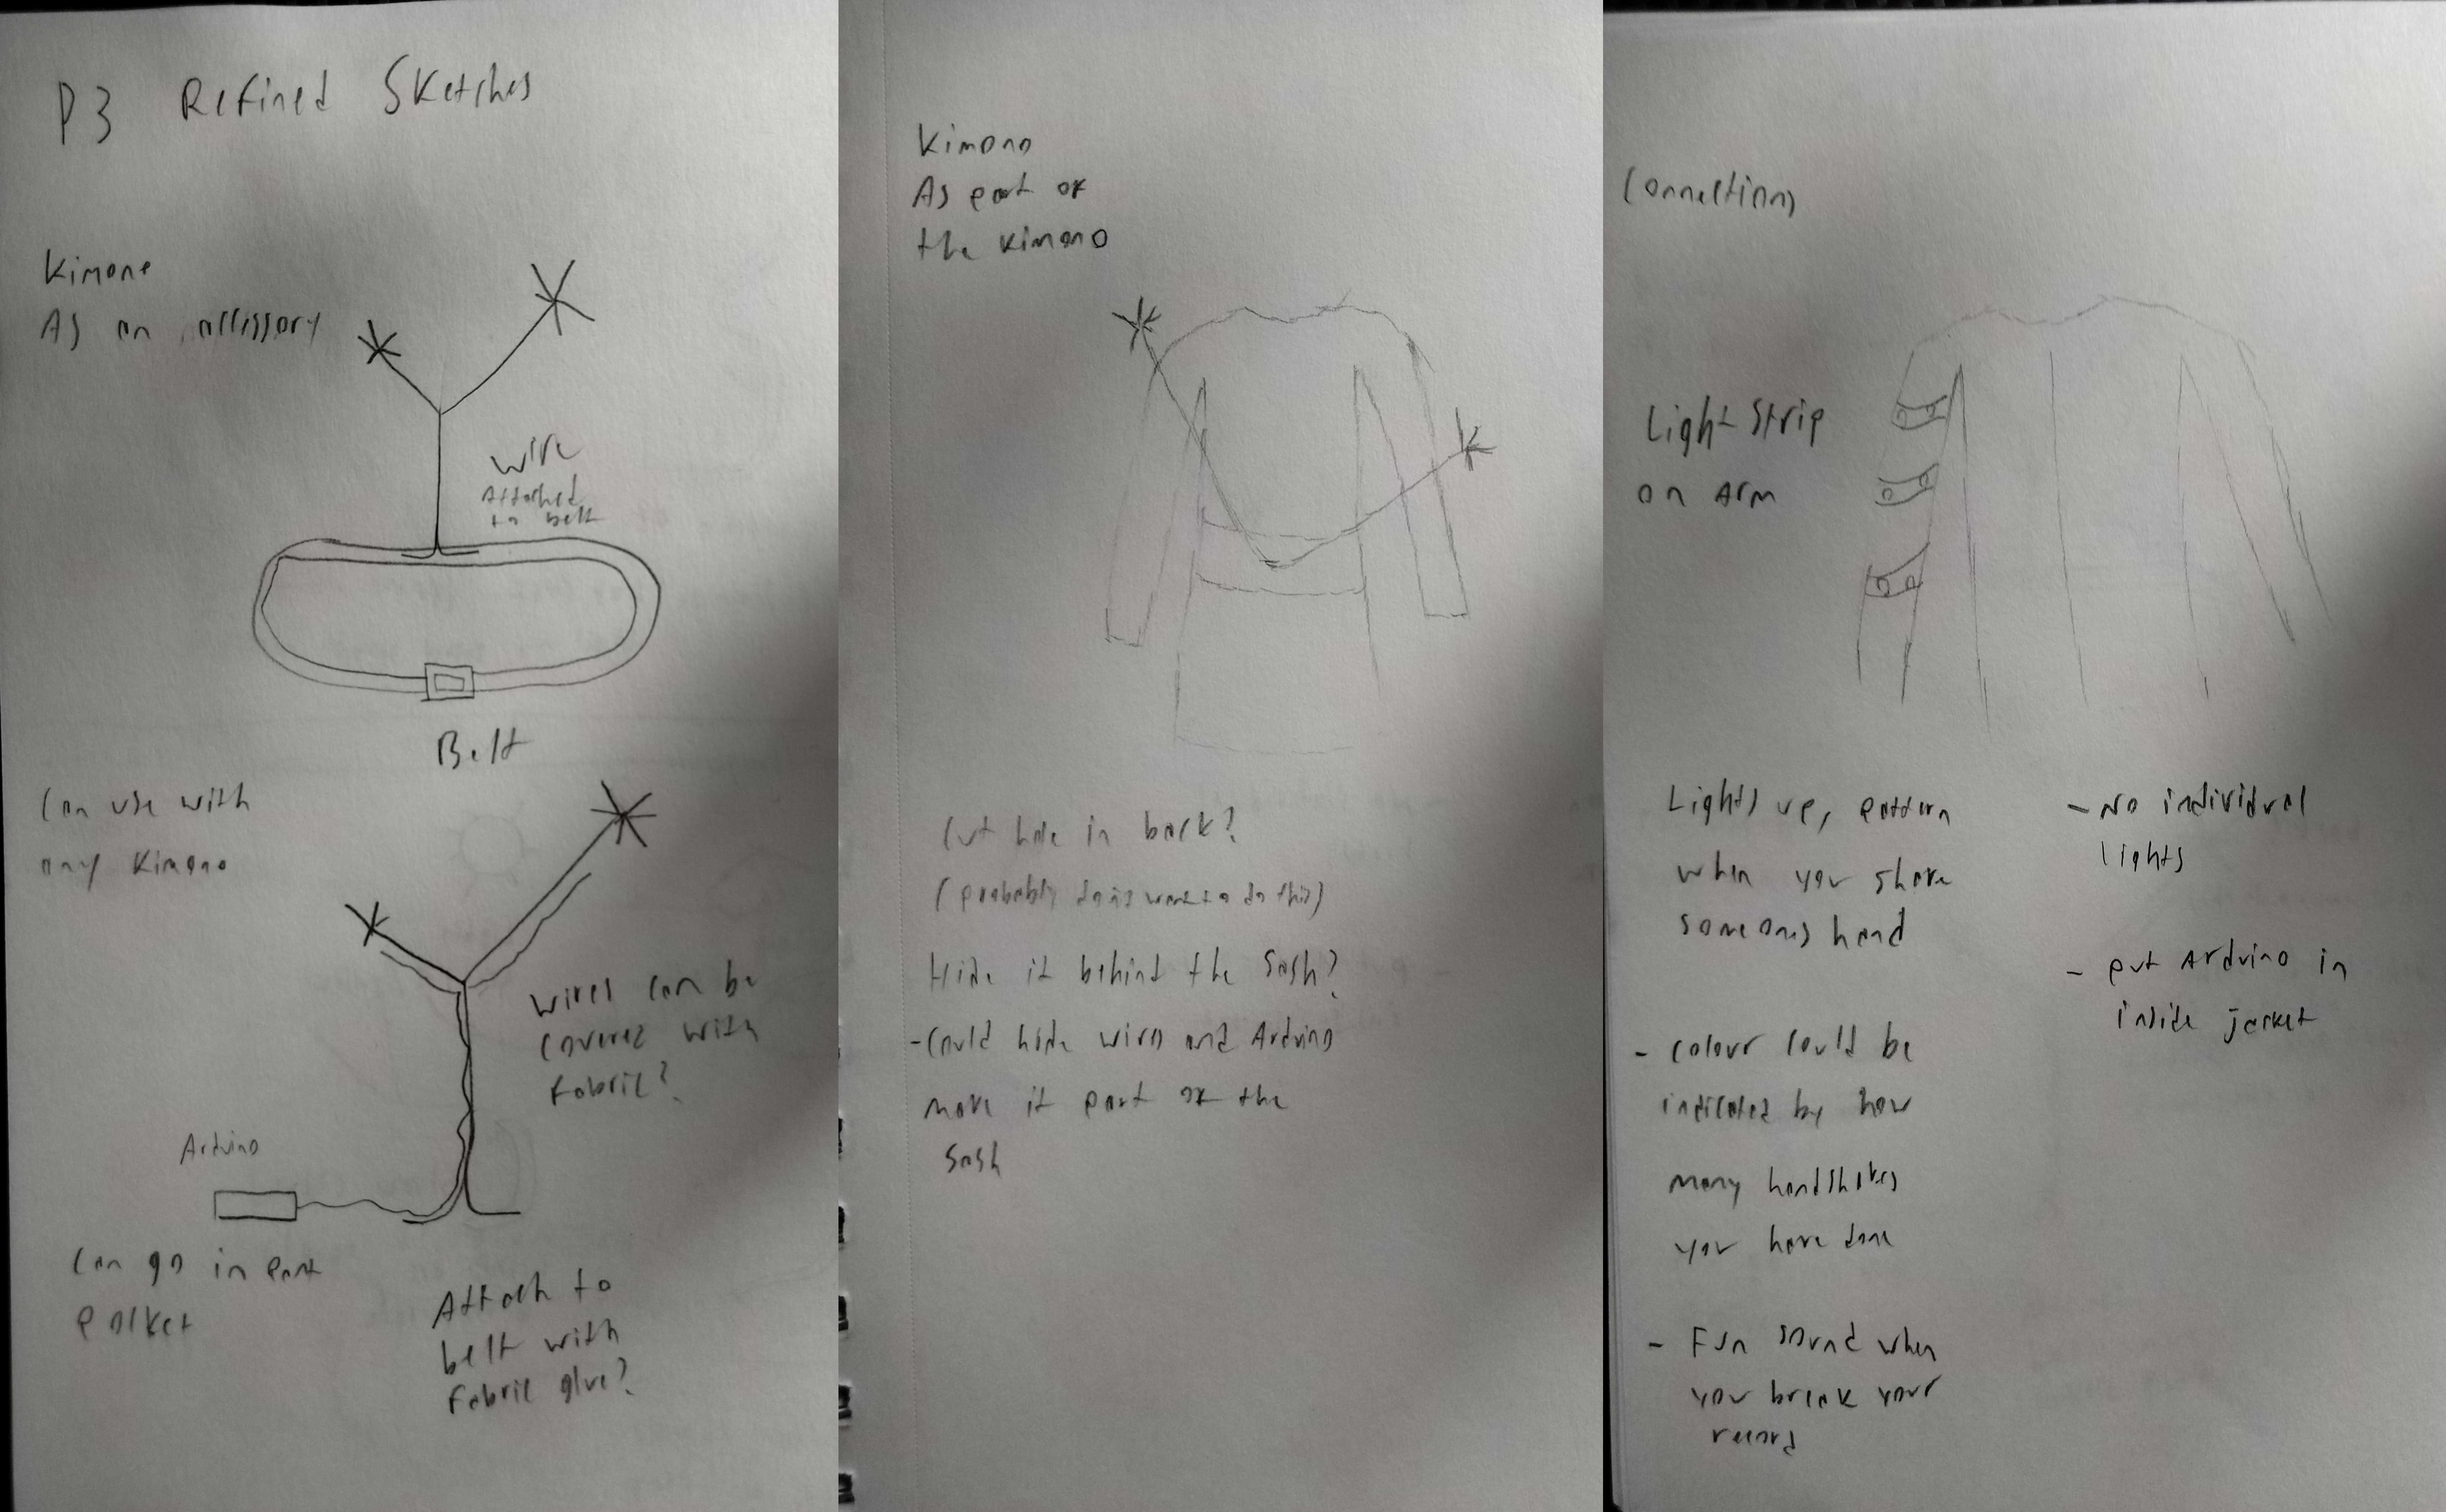 P3 Refined Sketches
Kimono
As an accissory
Wire
Attached
to belt
Belt
Can use with
any Kimono
Wires can be
covered with
fabric?
Arduino
Can go in pant
pocket
Attach to
belt with
fabric glue?
Kimono
As part of
the kimono
Cut hole in back?
(probably don't want to do this)
Hide it behind the Sash?
-Could hide wires and Arduino
make it part of the
Sash
Connections
Light Strip
on Arm
Lights up, pattern
when you shake
someones hand
- Colour could be
indicated by how
many handshakes
you have done
- Fun sound when
you break your
record
- No individual
lights
- put Arduino in
inside jacket